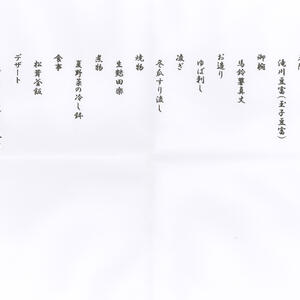 滝川豆富(玉子豆富)
御椀
馬鈴薯真丈
お造り
ゆば刺し
凌ぎ
冬瓜すり流し
焼物
生麩田楽
煮物
夏野菜の冷し鉢
食事
松茸釜飯
デザート